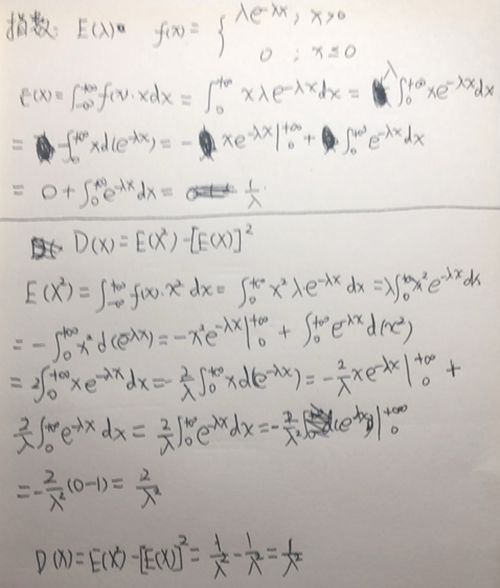 指数: E(λ)。 f(x) = { λe^{-λx}, x>0
0 ; x≤0
E(X)= ∫_{-∞}^{+∞} f(x)·xdx = ∫_0^{+∞} xλe^{-λx}dx = λ∫_0^{+∞} xe^{-λx}dx
= -∫_0^{+∞} xd(e^{-λx}) = - xe^{-λx}|_0^{+∞} + ∫_0^{+∞} e^{-λx}dx
= 0 + ∫_0^{+∞} e^{-λx}dx = 1/λ.
D(X) = E(X²)-[E(X)]²
E(X²) = ∫_{-∞}^{+∞} f(x)·x² dx = ∫_0^{+∞} x² λe^{-λx} dx = λ∫_0^{+∞} x²e^{-λx} dx
= -∫_0^{+∞} x² d(e^{-λx}) = -x²e^{-λx}|_0^{+∞} + ∫_0^{+∞} e^{-λx} d(x²)
= 2∫_0^{+∞} xe^{-λx}dx = -2/λ ∫_0^{+∞} xd(e^{-λx}) = -2/λ xe^{-λx}|_0^{+∞} +
2/λ ∫_0^{+∞} e^{-λx} dx = 2/λ ∫_0^{+∞} e^{-λx}dx = -2/λ² (e^{-λx})|_0^{+∞}
= -2/λ² (0-1) = 2/λ²
D(X) = E(X²)-[E(X)]² = 1/λ² - 1/λ² = 1/λ²